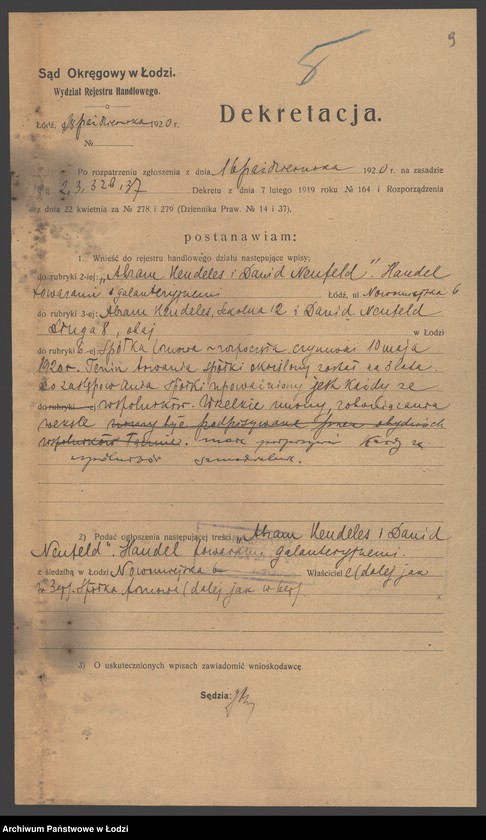 9
Sąd Okręgowy w Łodzi.
Wydział Rejestru Handlowego.
Dekretacja.
Łódź, d. 18 października 1920 r.
№
Po rozpatrzeniu zgłoszenia z dnia 16 października 1920 r. na zasadzie
2, 3, 32b i 37 Dekretu z dnia 7 lutego 1919 roku № 164 i Rozporządzenia
z dnia 22 kwietnia za № 278 i 279 (Dziennika Praw. № 14 i 37),
postanawiam:
1. Wnieść do rejestru handlowego działu następujące wpisy:
do rubryki 2-iej: „Abram Hendeles i Dawid Neufeld". Handel
towarami galanteryjnemi Łódź, ul. Nowomiejska 6
do rubryki 3-ej: Abram Hendeles, Szkolna 12 i Dawid Neufeld
Długa 8, obaj w Łodzi
do rubryki 6-ej: Spółka firmowa rozpoczęła czynność 10 maja
1920 r. Termin trwania spółki określony został na 3 lata.
Do zastępowania spółki upoważniony jest każdy ze
do rubryki ej wspólników. Wszelkie umowy, zobowiązania
weksle muszą być podpisywane przez obydwóch
wspólników łącznie. może podpisywać każdy ze
wspólników samodzielnie.
2) Podać ogłoszenia następującej treści: „Abram Hendeles i Dawid
Neufeld". Handel towarami galanteryjnemi.
z siedzibą w Łodzi Nowomiejska 6 Właściciele (dalej jak
w 3 ej). Spółka firmowa (dalej jak w 6 ej)
3) O uskutecznionych wpisach zawiadomić wnioskodawcę.
Sędzia:
Archiwum Państwowe w Łodzi